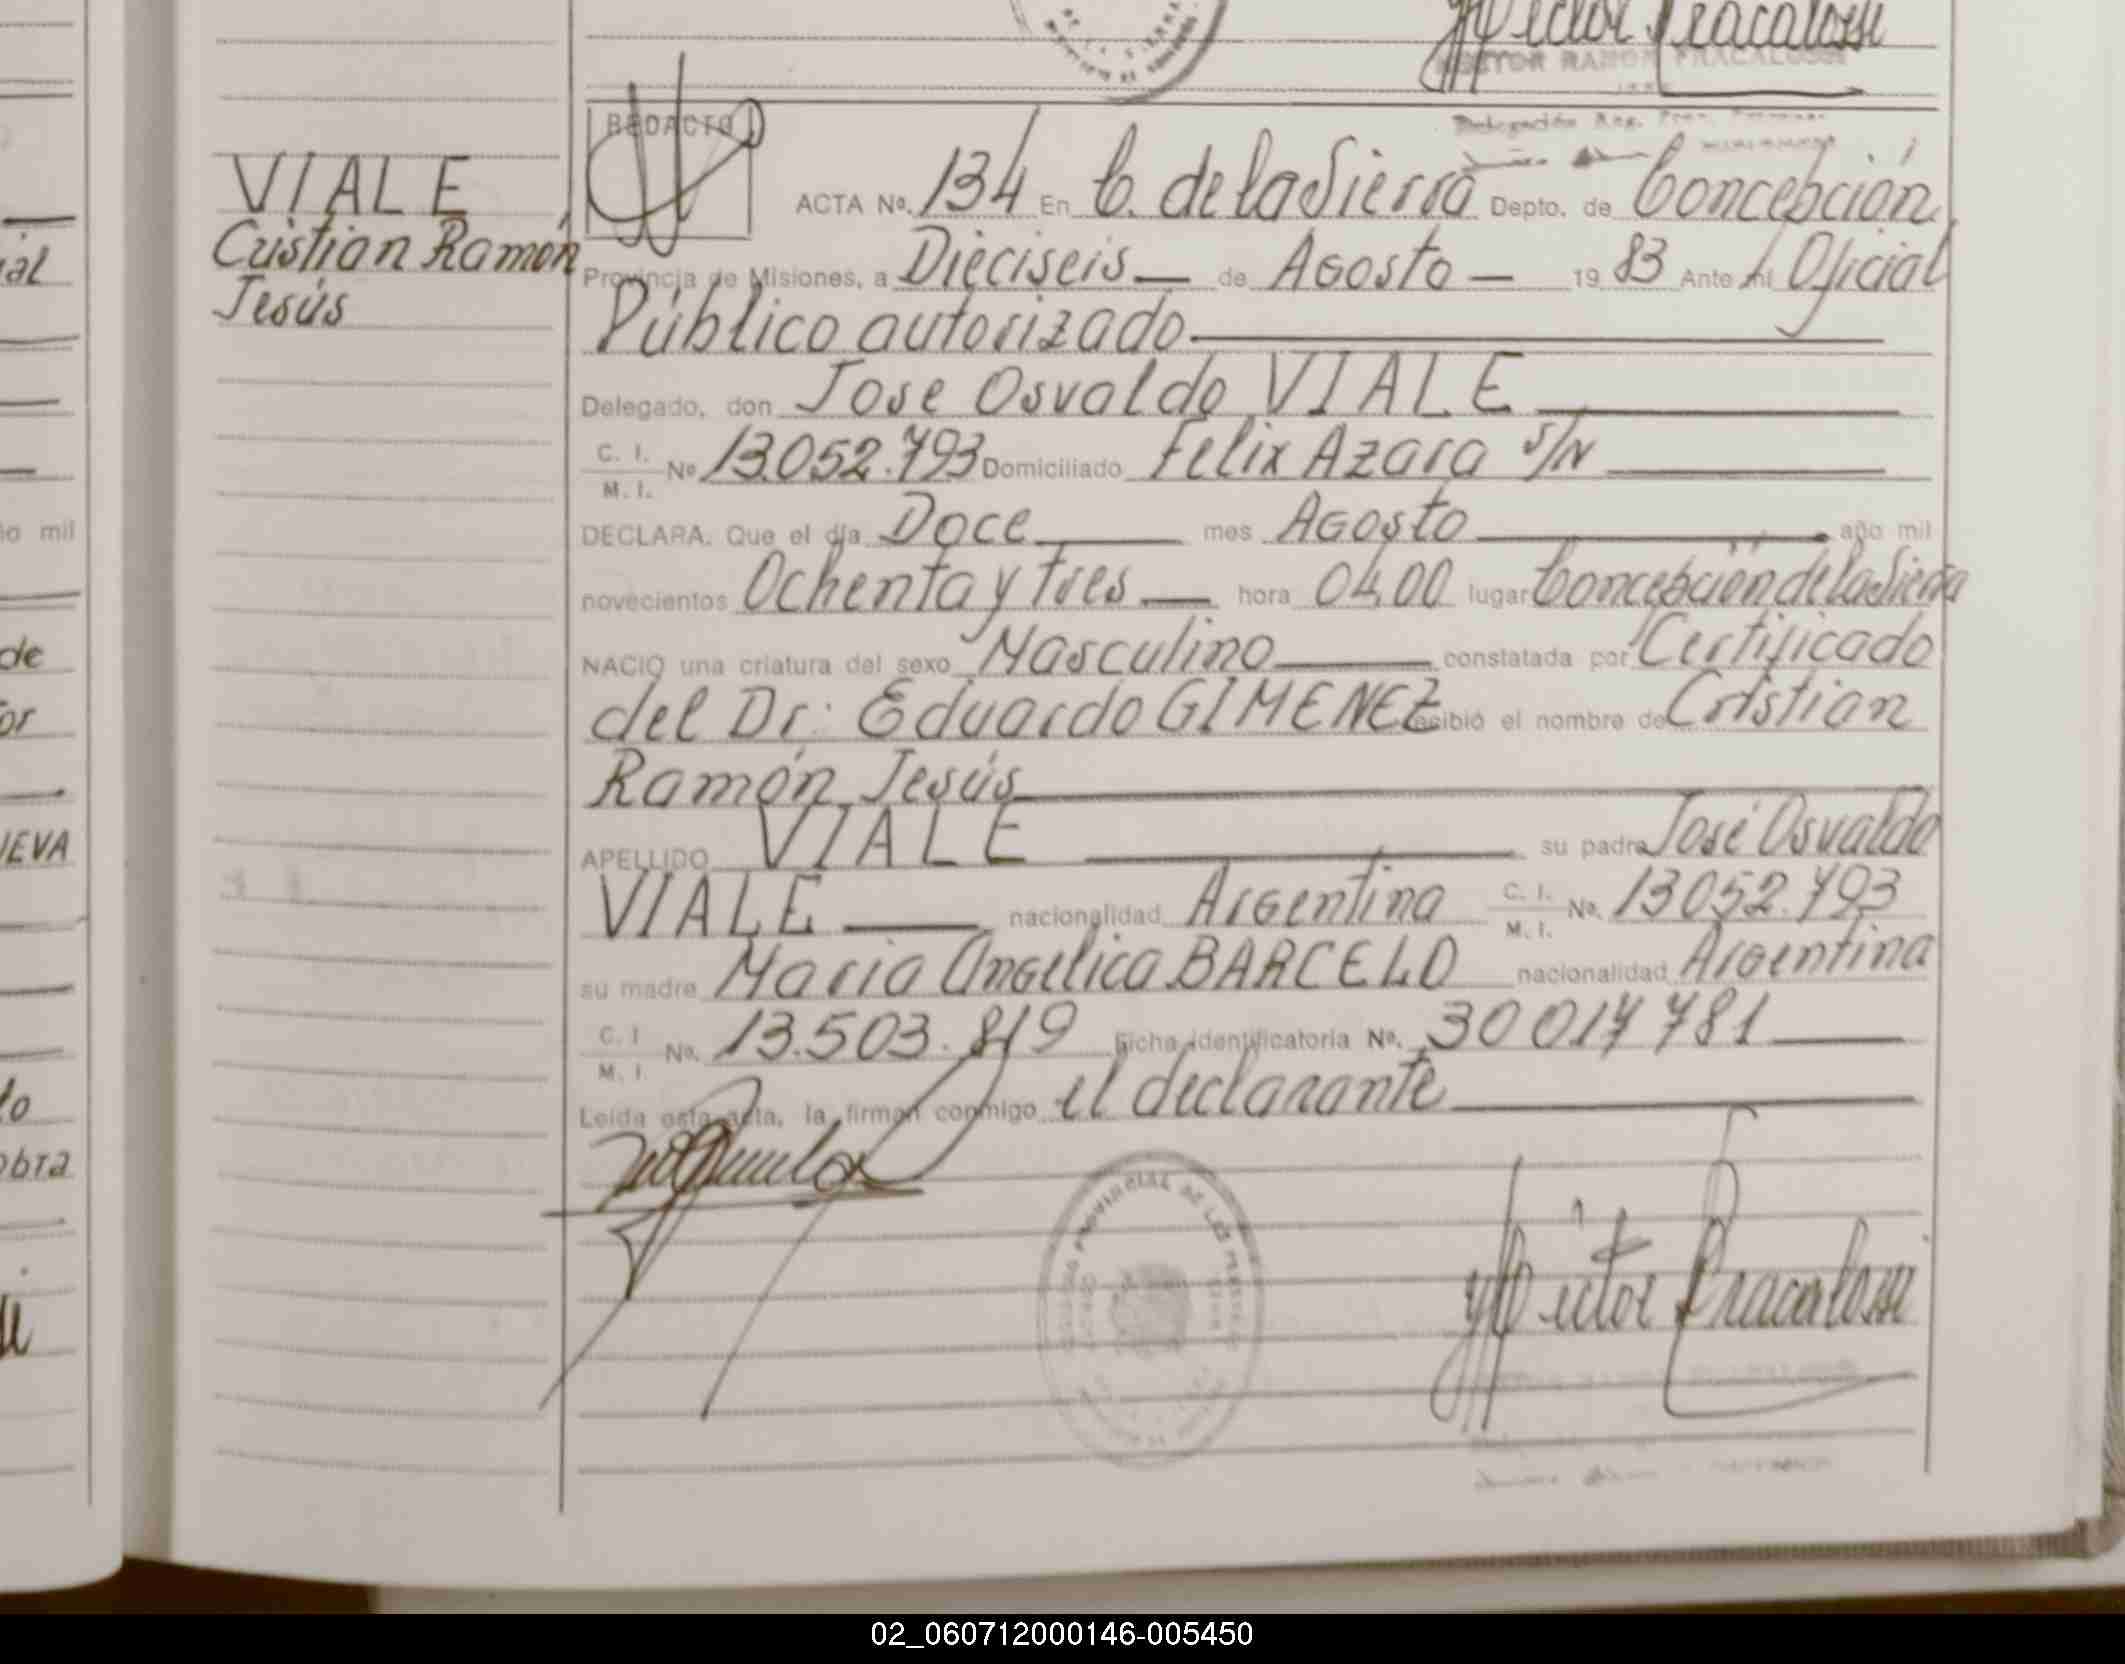 Héctor Fracalossi
HECTOR RAMON FRACALOSSI
VIALE
Cristian Ramón
Jesús
REDACTO
ACTA Nº. 134 En C. de la Sierra Depto. de Concepción
Provincia de Misiones, a Dieciseis de Agosto 19 83 Ante mí Oficial
Público autorizado
Delegado, don Jose Osvaldo VIALE
C. I.
M. I. Nº 13.052.793 Domiciliado Felix Azara S/N
DECLARA. Que el día Doce mes Agosto año mil
novecientos Ochenta y tres hora 04,00 lugar Concepción de la Sierra
NACIO una criatura del sexo Masculino constatada por Certificado
del Dr: Eduardo GIMENEZ recibió el nombre de Cristian
Ramón Jesús
APELLIDO VIALE su padre José Osvaldo
VIALE nacionalidad Argentina C. I. M. I. Nº. 13052.793
su madre Maria Angelica BARCELO nacionalidad Argentina
C. I
M. I. Nº. 13.503.819 Ficha identificatoria Nº. 30 017 781
Leida esta acta, la firman conmigo el declarante
Héctor Fracalossi
ial
ño mil
de
or
UEVA
to
obra
02_060712000146-005450